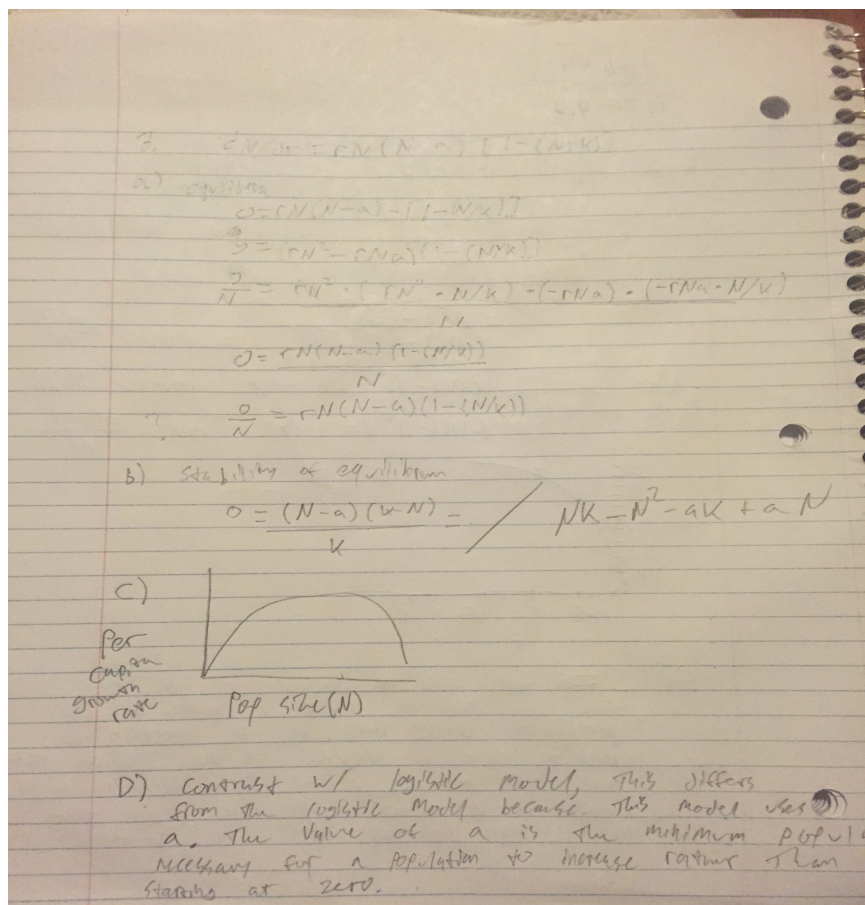 3. dN/dt = rN(N-a) [1-(N/K)]
a) equilibria
0=rN(N-a)-[1-N/K)]
0=(rN²-rNa)(1-(N/K))
0/N = rN² · (-rN² · N/K) · (-rNa) · (-rNa · N/K)
N
0= rN(N-a)(1-(N/K))
N
? 0/N = rN(N-a)(1-(N/K))
B) Stability of equilibrium
0 = (N-a)(K-N) = / NK-N²-aK+aN
K
C)
Per
capita
growth
rate
Pop size(N)
D) Contrast w/ logistic model, This differs
from the logistic model because this model uses
a. The value of a is the minimum popul
necessary for a population to increase rather than
starting at zero.